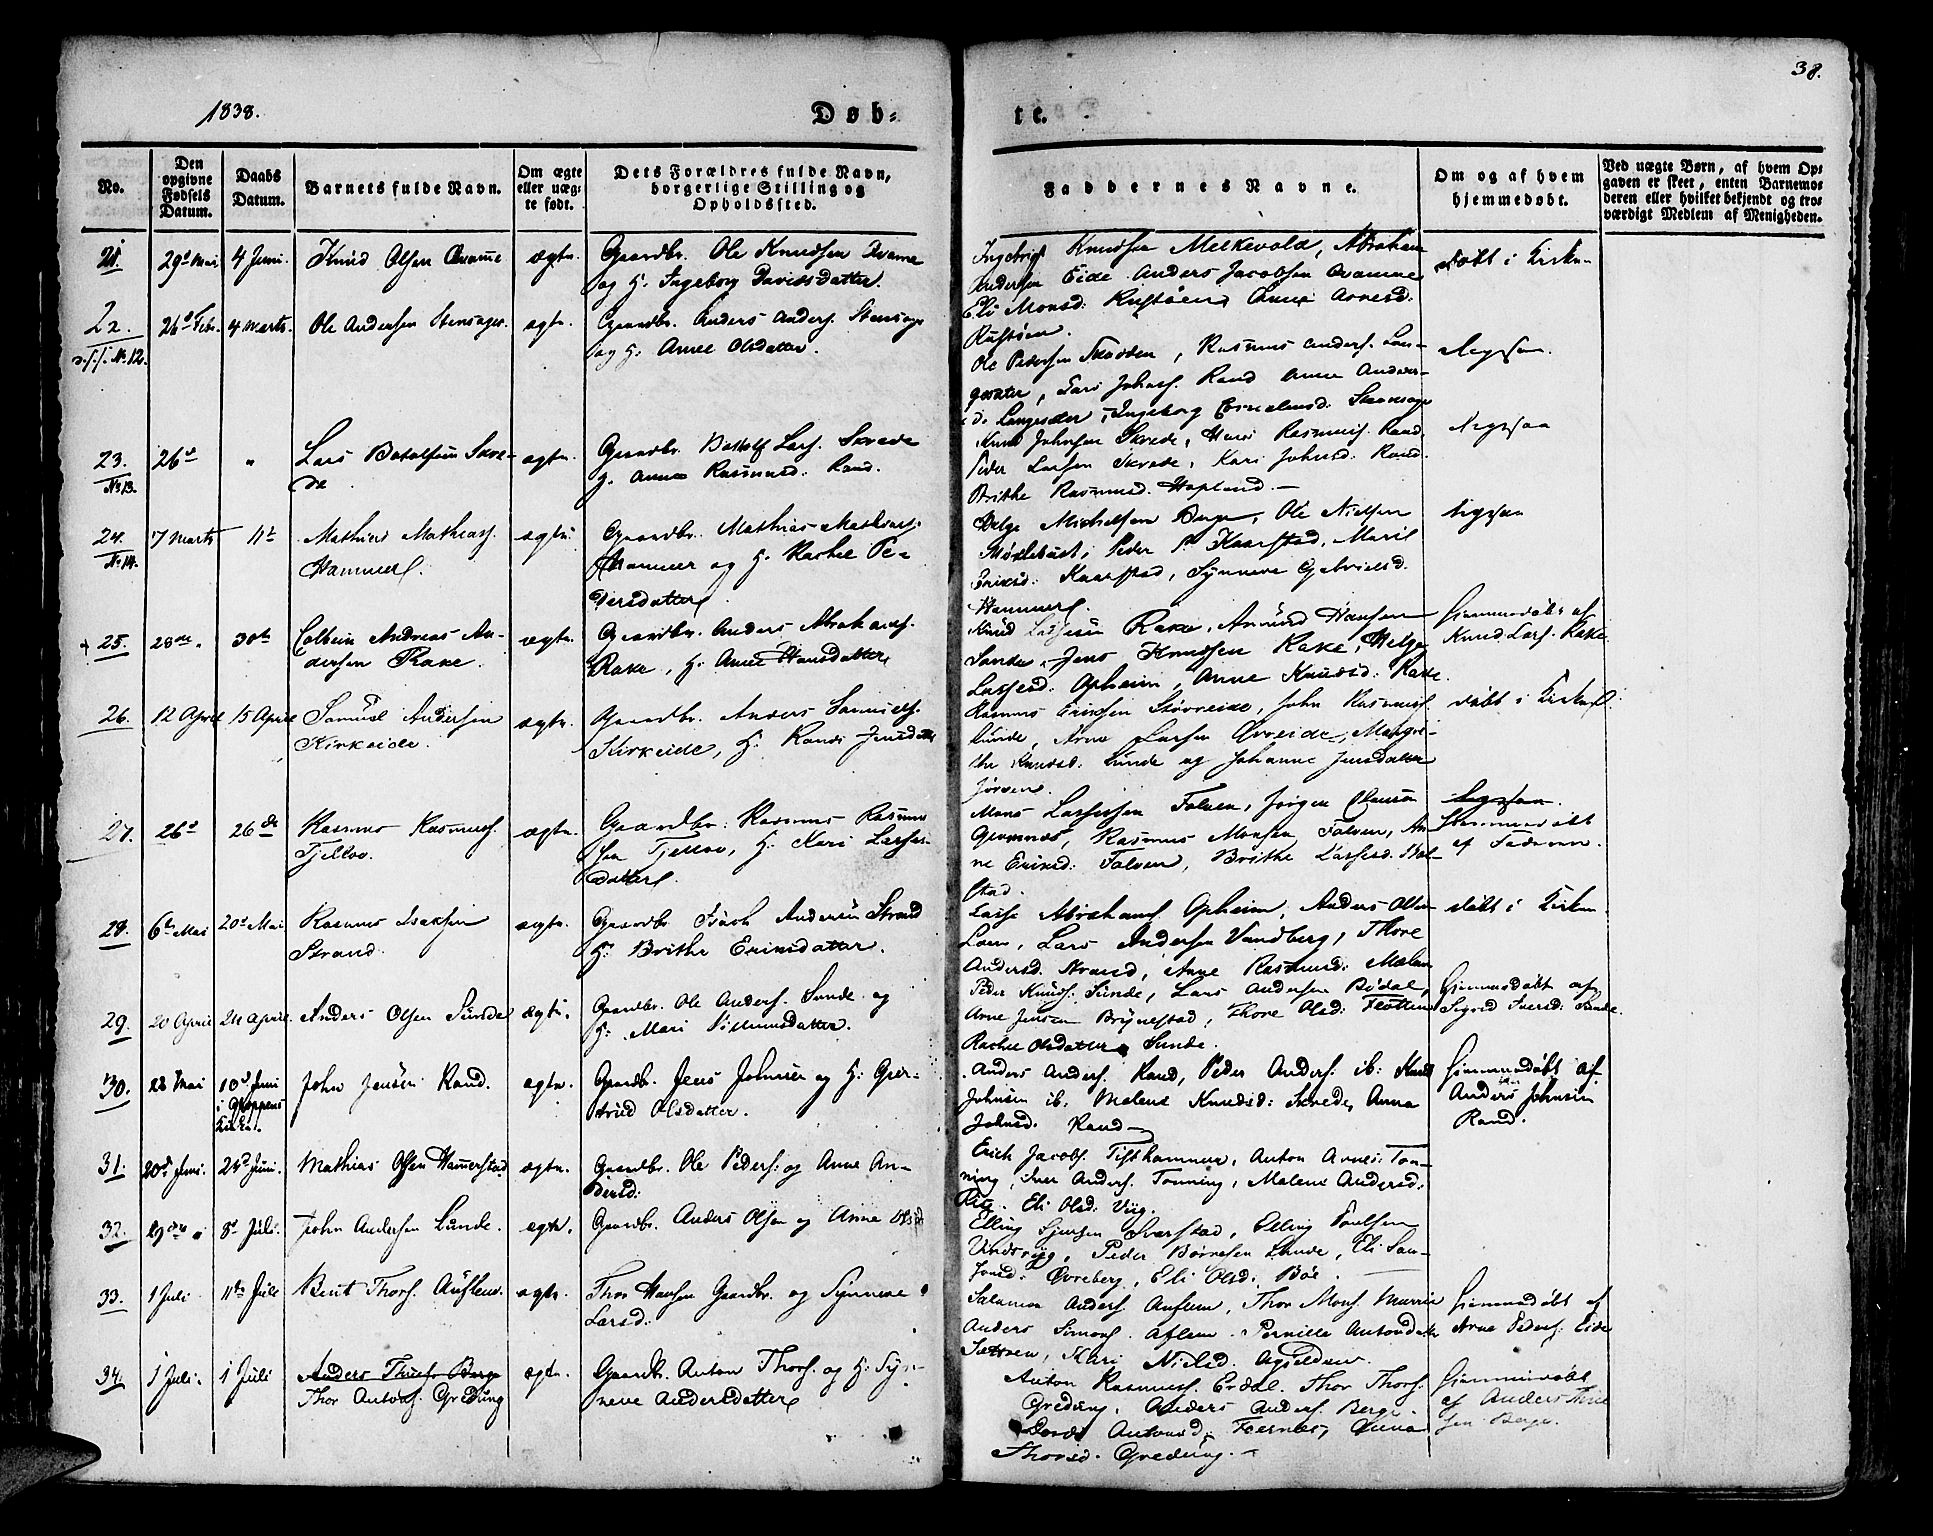 38.
1838.
Døb-
te.
No.
Den opgivne Fødsels Datum.
Daabs Datum.
Barnets fulde Navn.
Om ægte eller uægte født.
Dets Forældres fulde Navn, borgerlige Stilling og Opholdssted.
Faddernes Navne.
Om og af hvem hjemmedøbt.
Ved uægte Børn, af hvem Opgaven er skeet, enten Barnemoderen eller hvilket bekjendt og troværdigt Medlem af Menigheden.
21. 29d Mai 4 Juni. Knud Olsen Qvame ægte. Gaardbr. Ole Knudsen Qvame
og H. Ingeborg Davidsdatter.
Ingebrigt Knudsen Melkevold, Abraham
Andersen Eide Anders Jacobsen Qvamme
Eli Monsd. Rustøen, Anne Arnesd.
Rustøen.
døbt i Kirken
22. 26d Feb. 4 Marts. Ole Andersen Stensager. ægte. Gaardbr. Anders Anders. Stensager
og H. Anne Olsdatter.
No. 12.
Ole Pedersen Skaaden, Rasmus Anders. Lan-
gesæter, Lars Johns. Rand Anne Anders-
d. Langesæter, Ingeborg Cornelius d.
ligesaa.
23. 26d " Lars Botolfsen Skre-
de ægte. Gaardbr. Botolf Lars. Skrede
H. Anne Rasmusd. Rand.
No 13.
Knud Johnsen Skrede, Rasmus. Rand.
Peder Larsen Skrede, Kari Johnsd. Rand.
Brithe Rasmusd. Hopland.
ligesaa
24. 7 Marts 11te Mathias Mathias.
Hammer. ægte. Gaardbr. Mathias Mathias.
Hammer og H. Rachel Pe-
dersdatter.
No 14.
Helge Michelsen Berge, Ole Nielsen
Myklebust, Peder Kaarstad, Marit
Eriksd. Kaarstad, Synneve Gabrielsd.
Hammer.
ligesaa
25. 28de 30te Colbein Andreas An-
dersen Rake. ægte. Gaardbr. Anders Abrahams.
Rake, H. Anne Hansdatter
Knud Larsen Rake, Amund Hansen
Sande, Jens Knudsen Rake, Helge
Lassesd. Opheim, Anne Knudsd: Rake.
Hjemmedøbt af
Knud Lars. Rake.
26. 12 April 15 April Samuel Andersen
Kirkeide. ægte. Gaardbr. Anders Samuels.
Kirkeide, H. Randi Jensdatter
Rasmus Eriksen Støvreide, John Rasmus.
Sunde, Arne Larsen Qvreide, Mar gre-
the Knudsd: Sunde og Johanne Jensdatter
døbt i Kirken
27. 26d 26de Rasmus Rasmus.
Tjelloe. ægte. Gaardbr. Rasmus Rasmus-
sen Tjelloe, H. Kari Lasses-
datter.
Mons Lassesen Folven, Jørgen Clemen
Grøvnes, Rasmus Monsen Folven, An-
ne Eriksd: Folven, Brithe Lassesd. Bol-
stad.
ligesaa.
Hjemmedøbt
af Faderen.
28. 6te Mai 20d Mai Rasmus Isaksen
Strand. ægte. Gaardbr. Isach Andersen Strand
H. Brithe Eriksdatter.
Lasse Abrahams. Opheim, Anders Olsen
Loen, Lars Andersen Vandberg, Thore
Andersd. Strand, Anne Rasmusd: Mælen
døbt i Kirken
29. 20 April 24 April. Anders Olsen Sunde ægte. Gaardbr. Ole Anders. Sunde og
H. Mari Villumsdatter.
Peder Knuds. Sunde, Lars Andersen Bødal,
Arne Jensen Brynestad, Thore Olsd: Flotten
Rachel Olsdatter Sunde.
Hjemmedøbt af
Sigrid Iversd: Sunde.
30. 28 Mai 10d Juni
i Gloppens
Kirke. John Jensen Rand. ægte. Gaardbr. Jens Johnsen og H. Ger-
trud Olsdatter.
Anders Anders. Rand, Peder Anders. ib: Knud
Johnsen ib. Malene Knudsd: Skrede, Anna
Johnsd. Rand
Hjemmedøbt af
Anders Johnsen
Rand.
31. 20d Juni. 24d Juni. Mathias Olsen Hammerstad ægte. Gaardbr. Ole Peders. og Anne An-
dersd:
Erich Jacobs. Tisthammer, Anton Arnes: Ton-
ning, Iver Anders. Tonning, Malene Andersd:
Eli Olsd: Viig.
32. 29de " 8d Juli. John Andersen Sunde. ægte. Gaardbr. Anders Olsen og Anne Olsd
Elling Sjursen Svarstad, Elling Poulsen
Vindsviig, Peder Børresen Sunde, Eli San-
Qvreberg, Eli Olsd: Bøe.
33. 1 Juli 11te Juli Berit Thors. Auflem. ægte. Thor Hansen Gaardbr. og Synneve
Larsd:
Salamon Anders. Auflem, Thor Mons. Murrie
Anders Simons. Aflem. Pernille Antondatter
Sætren, Kari Nielsd.
Hjemmedøbt af
Arne Peders: Eide
34. 1 Juli. 1 Juli Anders Thues. Berge
Thor Antons. Gredung ægte. Gaardbr. Anton Thors. og H. Syn-
neve Andersdatter
Anton Rasmus. Erdal. Thor Thors.
Gredung, Anders Anders. Berge.
Antonsd: Anna
Thorsd. Gredung.
Hjemmedøbt
af Anders Thue
sen Berge.